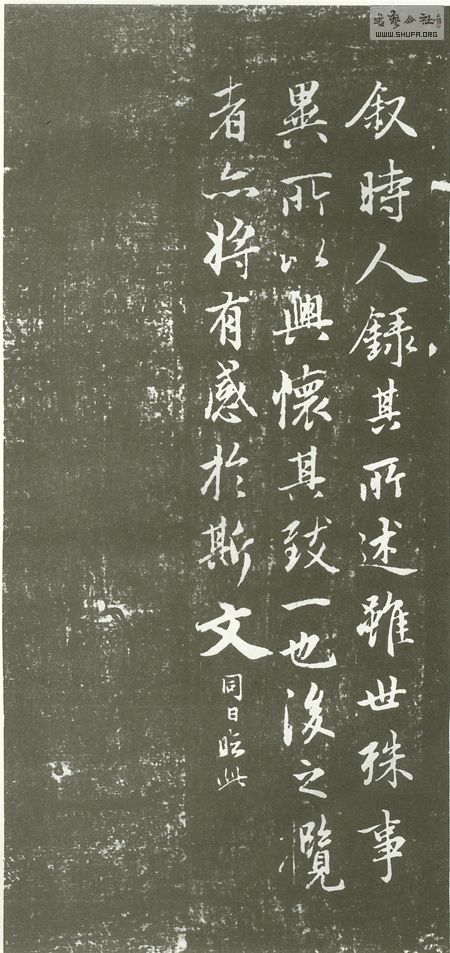 叙時人録其所述雖世殊事
異所以興懷其致一也後之攬
者亦将有感於斯文
同日臨此
書藝公社
WWW.SHUFA.ORG